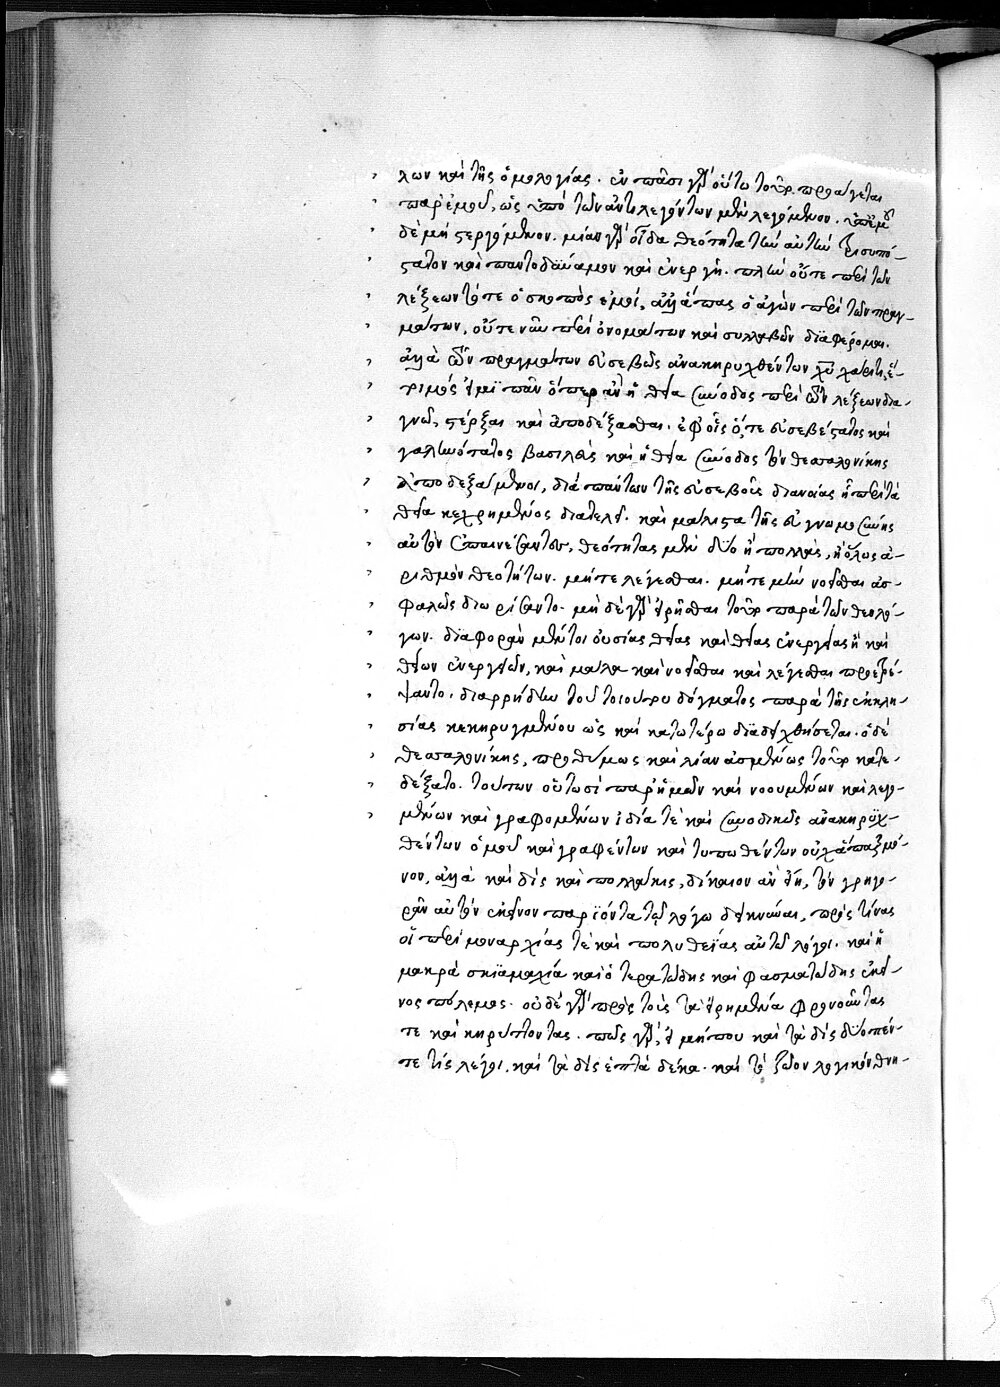 λων καὶ τῆς ὁμολογίας. ἐν πᾶσι γὰρ οὕτω τοῦτο προάγεται
παρ' ἐμοῦ, ὡς ὑπὸ τῶν ἀντιλεγόντων μὲν λεγόμενον. ὑπ' ἐμοῦ
δὲ μὴ στεργόμενον. μίαν γὰρ οἶδα θεότητα τὴν αὐτὴν τρισυπό-
στατον καὶ παντοδύναμον καὶ ἐνεργῆ. πλὴν οὔτε περὶ τῶν
λέξεων τότε ὁ σκοπὸς ἐμοί, ἀλλ' ἅπας ὁ ἀγὼν περὶ τῶν πραγ-
μάτων, οὔτε νῦν περὶ ὀνομάτων καὶ συλλαβῶν διαφέρομαι.
ἀλλὰ τῶν πραγμάτων εὐσεβῶς ἀνακηρυχθέντων χῦ χάριτι, ἕ-
τοιμός εἰμι πᾶν ὅπερ ἂν ἡ θεία σύνοδος περὶ τῶν λέξεων δια-
γνῷ, στέρξαι καὶ ἀποδέξασθαι. ἐφ' οἷς ὅ, τε εὐσεβέστατος καὶ
γαληνότατος βασιλεὺς καὶ ἡ θεία σύνοδος τὸν θεσσαλονίκης
ἀποδεξάμενοι, διὰ πάντων τῆς εὐσεβοῦς διανοίας ᾗ περὶ τὰ
θεῖα κεχρημένος διατελεῖ. καὶ μάλιστα τῆς εὐγνωμοσύνης
αὐτὸν ἐπαινέσαντες, θεότητας μὲν δύο ἢ πολλὰς, ἢ ὅλως ἀ-
ριθμὸν θεοτήτων. μήτε λέγεσθαι. μήτε μὴν νοεῖσθαι ἀσ-
φαλῶς διωρίσαντο. μηδὲ γὰρ εἰρῆσθαι τοῦτο παρὰ τῶν θεολό-
γων. διαφορὰν μέντοι οὐσίας θείας καὶ θείας ἐνεργείας ἢ καὶ
θείων ἐνεργειῶν, καὶ μάλα καὶ νοεῖσθαι καὶ λέγεσθαι προετρέ-
ψαντο. διαρρήδην τοῦ τοιούτου δόγματος παρὰ τῆς ἐκκλη-
σίας κεκηρυγμένου ὡς καὶ κατωτέρω διαδειχθήσεται. ὁ δὲ
θεσσαλονίκης, προθύμως καὶ λίαν ἀσμένως τοῦτο κατε-
δέξατο. τούτων οὑτωσὶ παρ' ἡμῶν καὶ νοουμένων καὶ λεγο-
μένων καὶ γραφομένων ἰδίᾳ τὲ καὶ συνοδικῶς ἀνακηρυχ-
θέντων ὁμοῦ καὶ γραφέντων καὶ τυπωθέντων οὐχ ἅπαξ μό-
νον, ἀλλὰ καὶ δὶς καὶ πολλάκις, δίκαιον ἂν εἴη, τὸν γρηγο-
ρᾶν αὐτὸν ἐκεῖνον παριόντα τῷ λόγῳ δεικνύναι, πρὸς τίνας
οἱ περὶ μοναρχίας τὲ καὶ πολυθεΐας αὐτῷ λόγοι. καὶ ἡ
μακρὰ σκιαμαχία καὶ ὁ τερατώδης καὶ φασματώδης ἐκεῖ-
νος πόλεμος. οὐδὲ γὰρ πρὸς τοὺς τὰ εἰρημένα φρονοῦντας
τε καὶ κηρύττοντας. πῶς γάρ, εἰ μήπου καὶ τὰ δὶς δύο πέν-
τε τὶς λέγοι. καὶ τὰ δὶς ἑπτὰ δέκα. καὶ τὸ ζῶον λογικὸν θνη-